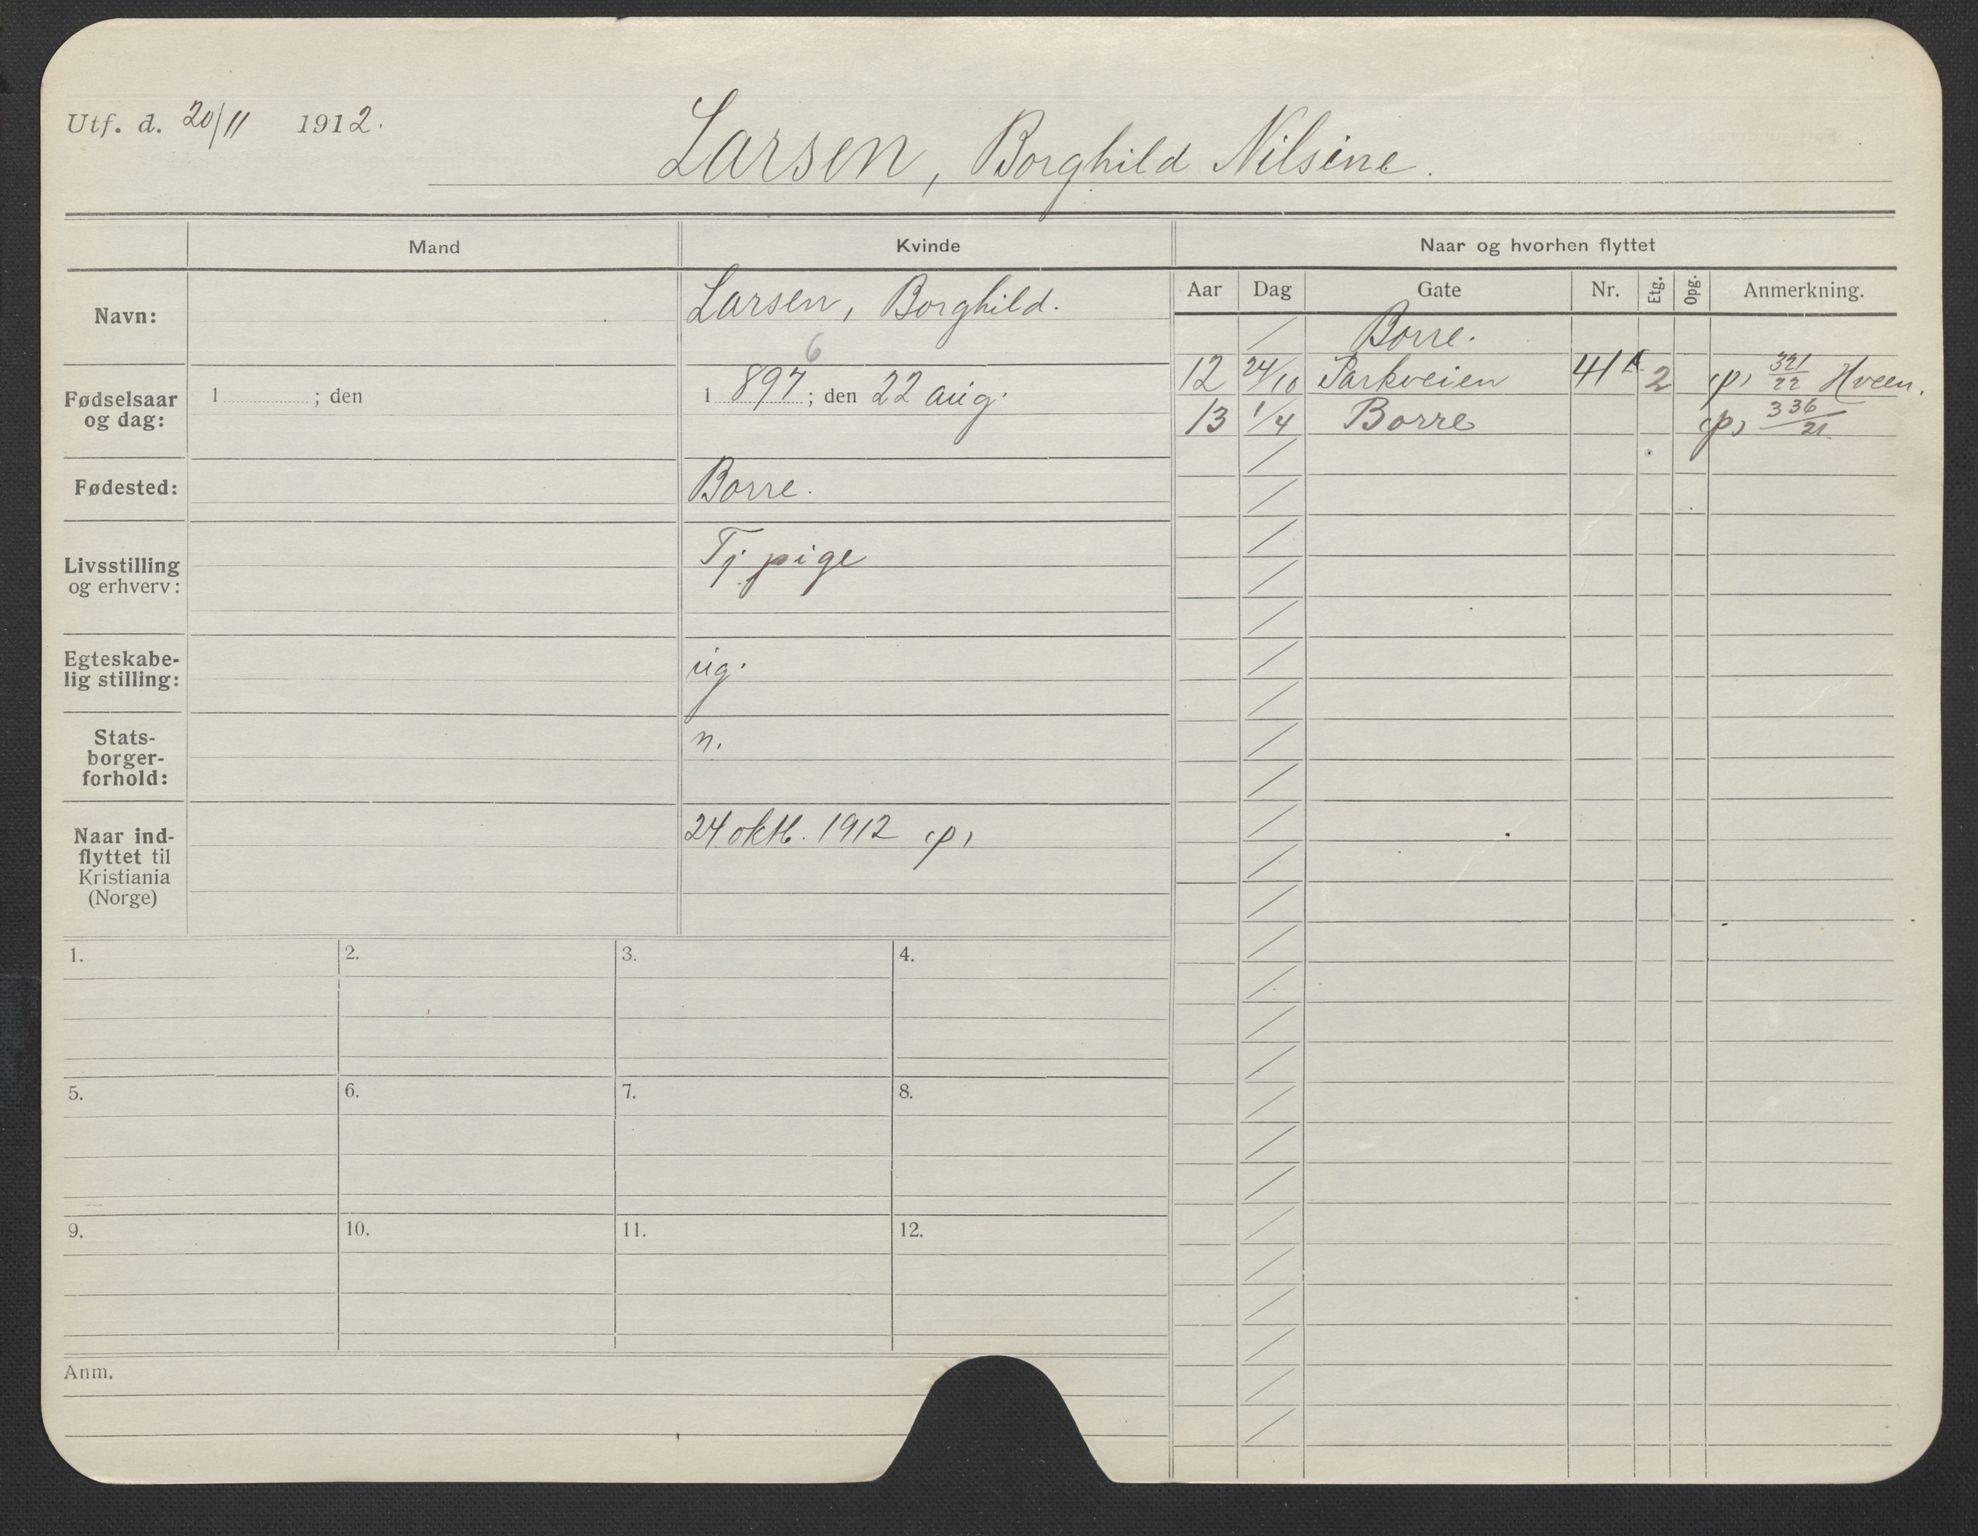 Utf. d. 20/11 1912.
Larsen, Borghild Nilsine.
Mand
Kvinde
Naar og hvorhen flyttet
Navn:
Larsen, Borghild.
Aar Dag Gate Nr. Etg. Opg. Anmerkning.
/ Borre.
12 24/10 Parkveien 41 A 2 (p) 321/22 Hveen.
13 1/4 Borre (p) 336/21
6
Fødselsaar
og dag:
1 ; den
1 897 ; den 22 aug.
Fødested:
Borre.
Livsstilling
og erhverv:
Tj. pige
Egteskabe-
lig stilling:
ug.
Stats-
borger-
forhold:
n.
Naar ind-
flyttet til
Kristiania
(Norge)
24 oktb. 1912 (p)
1. 2. 3. 4.
5. 6. 7. 8.
9. 10. 11. 12.
Anm.